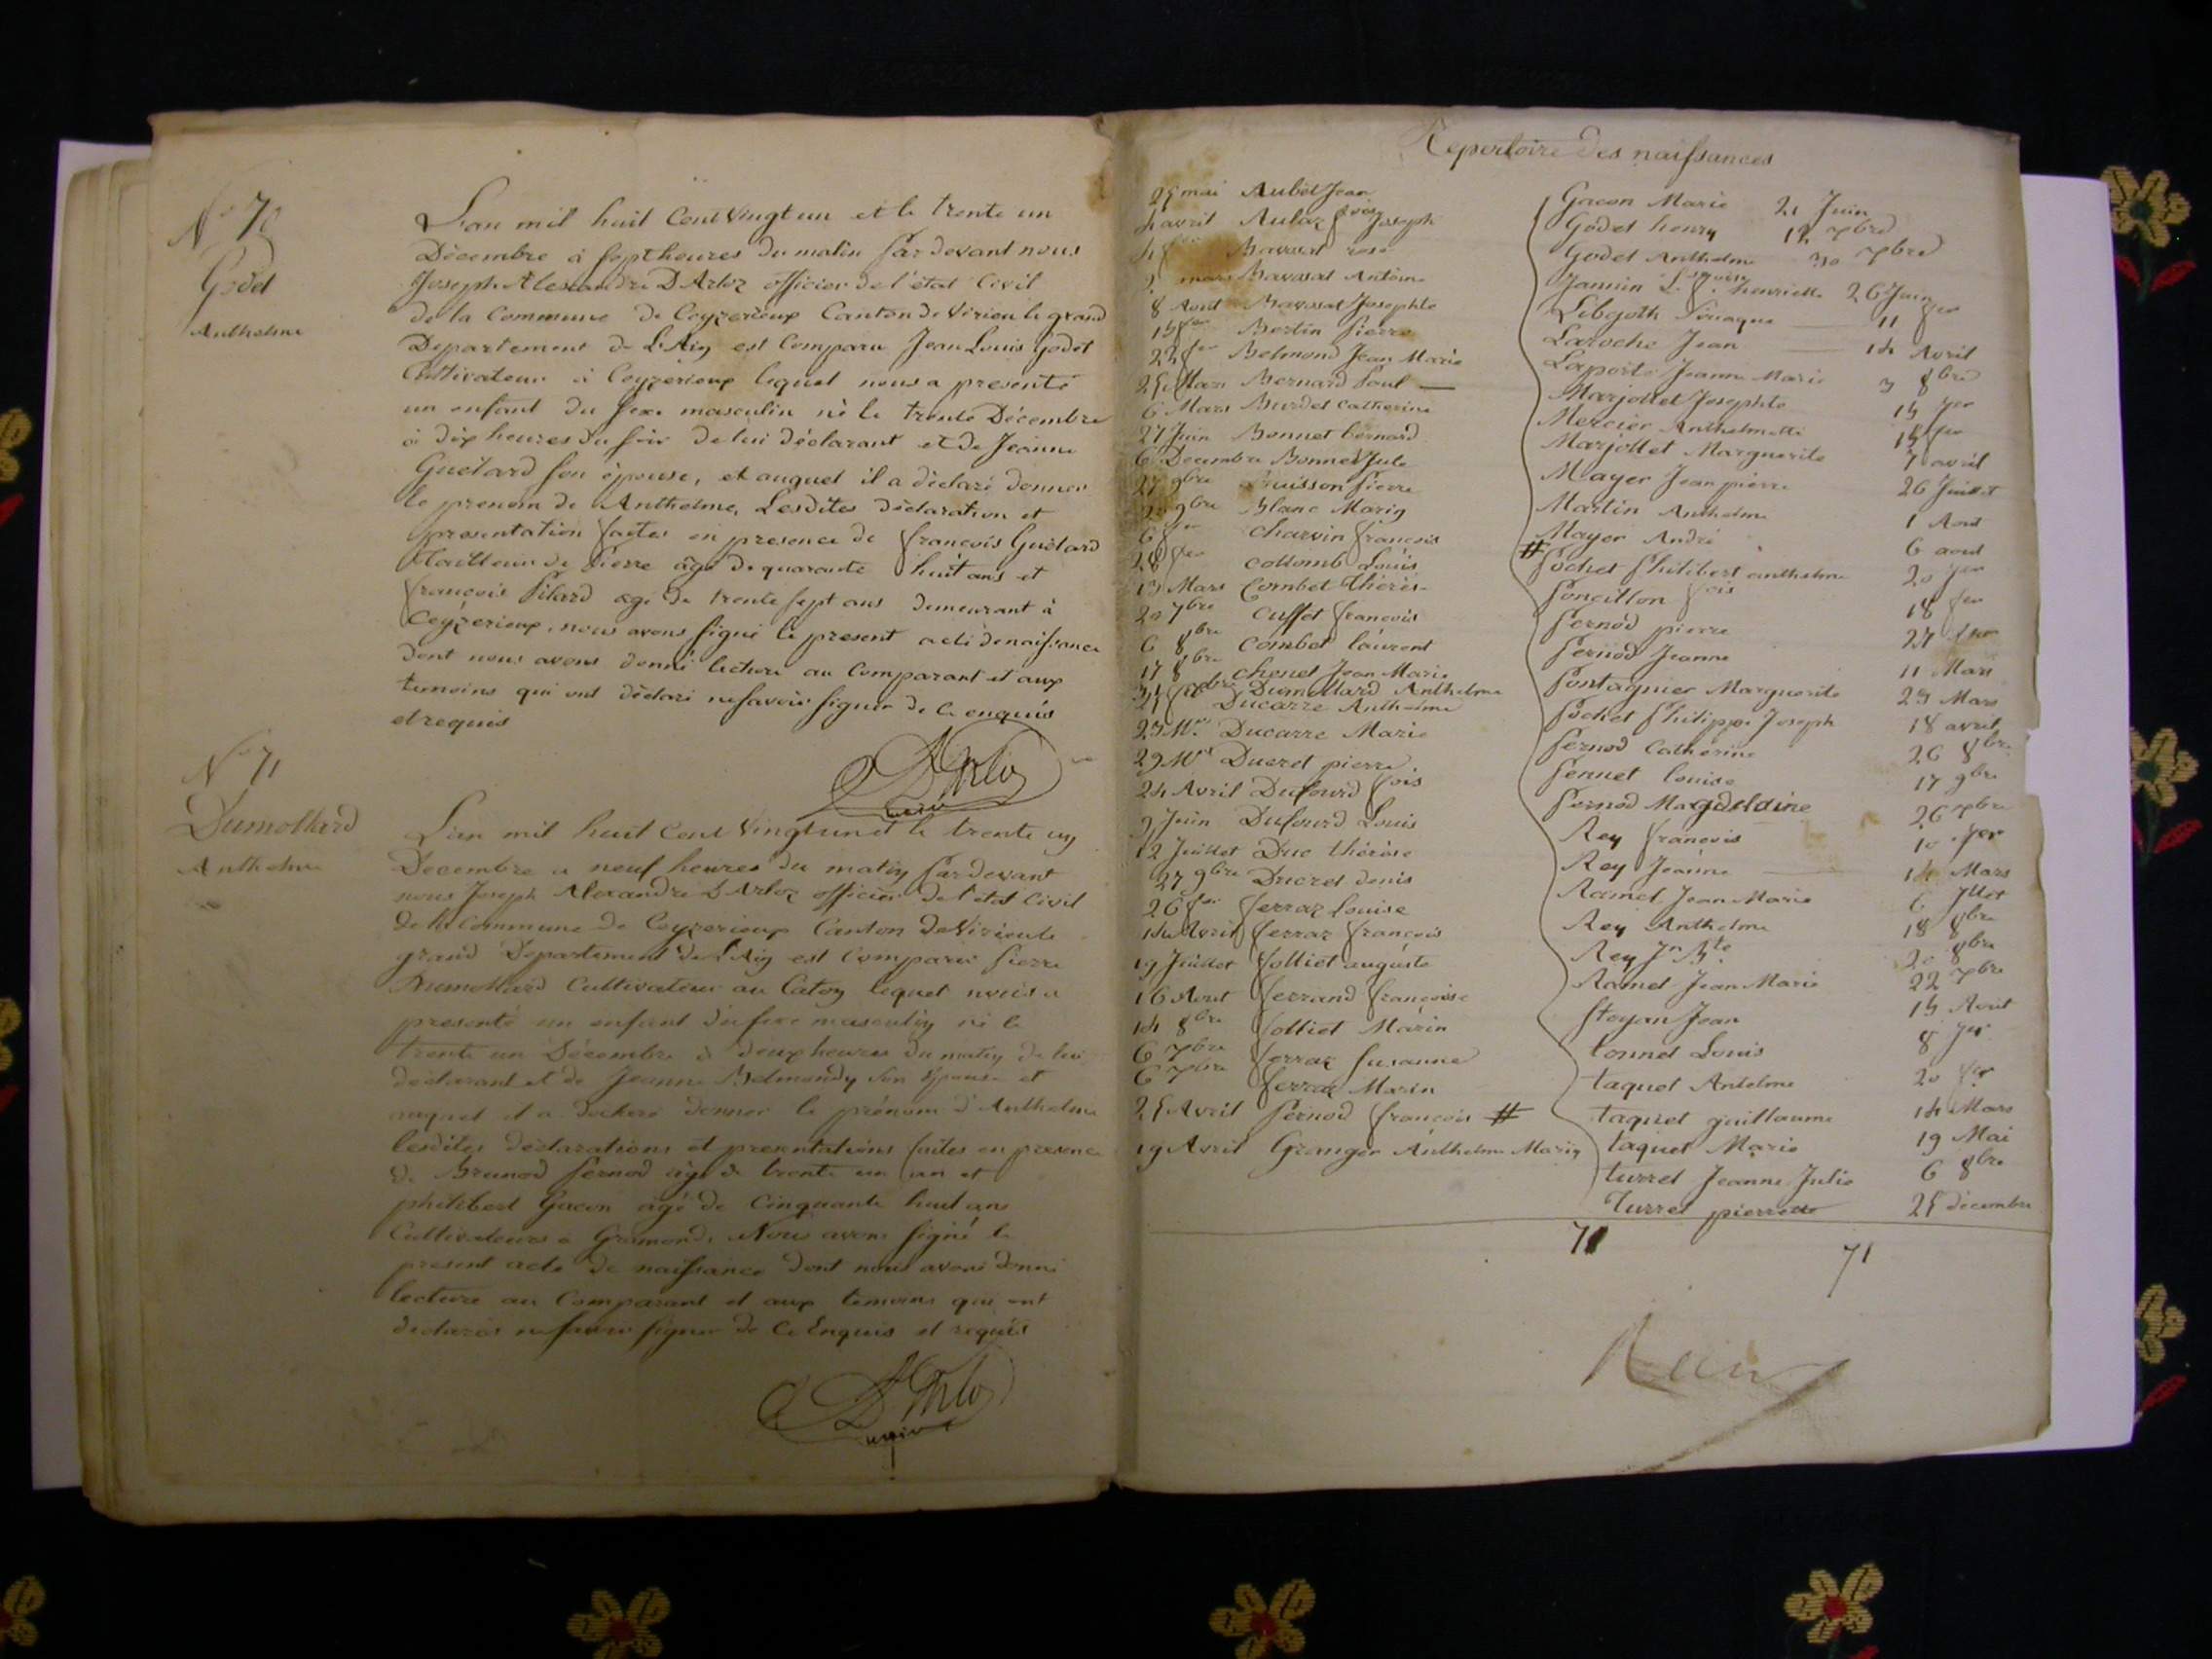 N° 70
Godet
Anthelme
L'an mil huit Cent Vingt un et le trente un
Décembre à sept heures du matin Pardevant nous
Joseph Alexandre D'Arloz officier de l'état Civil
de la Commune de Ceyzerieux Canton de Virieu le grand
Departement de L'Ain est Comparu Jean Louis Godet
Cultivateur à Ceyzérieux lequel nous a presenté
un enfant du sexe masculin né le trente Décembre
à dix heures du soir de lui déclarant et de Jeanne
Guétard son épouse, et auquel il a déclaré donner
le prenom de Anthelme, Lesdites déclaration et
presentation faites en presence de françois Guétard
Tailleur de Pierre âgé de quarante huit ans et
françois Pilard agé de trente sept ans demeurant à
Ceyzerieux, nous avons signé le present acte de naissance
dont nous avons donné lecture au Comparant et aux
temoins qui ont déclaré ne savoir signer de ce enquis
et requis
D'Arloz
maire
N° 71
Dumollard
Anthelme
L'an mil huit Cent Vingt un et le trente un
Decembre a neuf heures du matin Pardevant
nous Joseph Alexandre D'Arloz officier de l'état Civil
de la Commune de Ceyzerieux Canton de Virieu le
grand Departement de l'Ain est Comparu Pierre
Dumollard Cultivateur au Caton lequel nous a
presenté un enfant du sexe masculin né le
trente un Décembre à deux heures du matin de lui
déclarant et de Jeanne Belmondy son épouse et
auquel il a déclaré donner le prénom d'Anthelme
lesdites déclarations et presentations faites en presence
de Brunod Pernod âgé de trente un an et
philibert Gacon âgé de Cinquante huit ans
Cultivateurs a Gramond. Nous avons signé le
present acte de naissance dont nous avons donné
lecture au Comparant et aux temoins qui ont
declarés ne savoir signer de Ce Enquis et requis
D'Arloz
maire
Repertoire des naissances
25 mai Aubet Jean
4 avril Aularz fçois Joseph
Bavosat rose
mars Bavosat Antoine
8 Août Bavosat Josephte
15 fer Bertin Pierre
22 fer Belmond Jean Marie
25 Mars Bernard Paul
6 Mars Burdet Catherine
27 Juin Bonnet bernard
6 Decembre Bonnet Jule
27 9bre Buisson Pierre
9bre Blanc Marin
6 charvin françois
28 fer collomb Louis
13 Mars Combet thérèse
20 7bre Cusset françois
6 8bre Combet laurent
17 8bre chenet Jean Marie
31 Xbre Dumollard Anthelme
Ducarre Anthelme
23 Ms Ducarre Marie
29 Ms Ducret pierre
24 Avril Dufourd fçois
9 Juin Dufourd Louis
12 Juillet Duc thérèse
27 9bre Ducret denis
26 fer ferraz Louise
14 Avril ferraz françois
19 Juillet folliet auguste
16 Aout ferrand françoise
14 8bre folliet Marin
6 7bre ferraz Susanne
6 7bre ferraz Marin
25 Avril Pernod françois #
19 Avril Granger Anthelme Marin
Gacon Marie 21 Juin
Godet henry 12 7bre
Godet Anthelme 30 Xbre
Jannin L. fçoise henriette 26 Juin
Libejoth 11 fer
Laroche Jean 14 Avril
Laporte Jeanne Marie 3 8bre
Marjollet Josephte 15 Jer
Mercier Anthelmette 15 fer
Marjollet Marguerite 7 avril
Mayer Jean pierre 26 Juillet
Martin Anthelme 1 Aout
Mayer André 6 aout
# Pochet Philibert anthelme 20 Jer
Poncillon fçois 18 fer
Pernod pierre 27 fer
Pernod Jeanne 11 Mars
Pontagnier Marguerite 23 Mars
Pochet Philippe Joseph 18 avril
Pernod Catherine 26 8bre
Pennet louise 17 9bre
Pernod Magdeldine 26 Xbre
Rey françois 10 Jer
Rey Jeanne 14 Mars
Ramel Jean Marie 6 Jllet
Rey Anthelme 18 8bre
Rey Jn Bte 20 8bre
Ramel Jean Marie 22 7bre
Stoyan Jean 15 Avril
tonnet Louis 8 Jer
taquet Antelme 20 fer
taquet guillaume 14 Mars
taquet Marie 19 Mai
turrel Jeanne Julie 6 8bre
Turrel pierrette 25 décembre
71
71